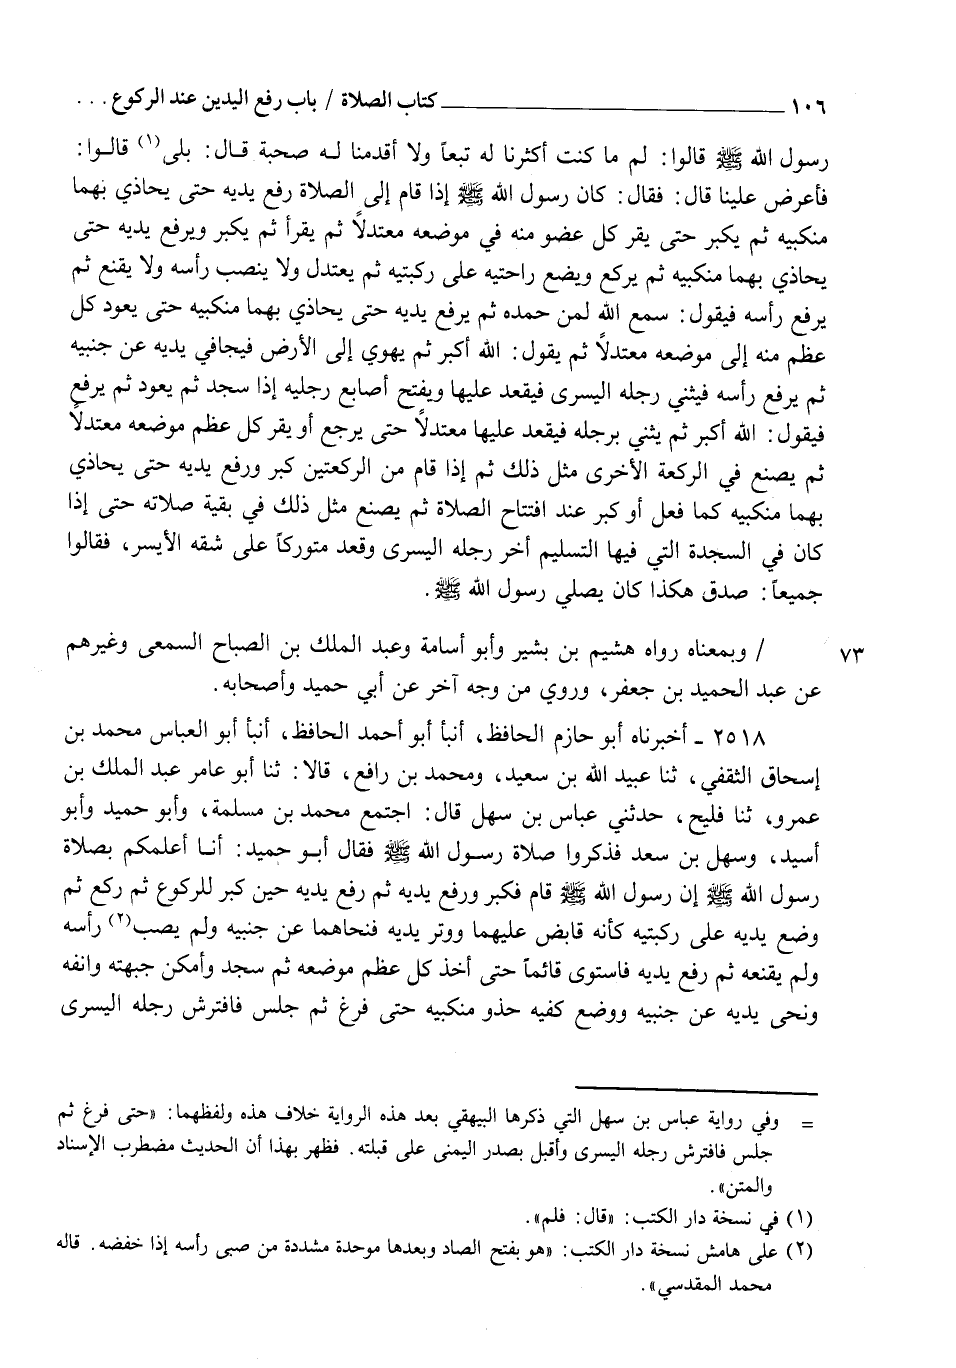 ١٠٦ ــــــــــــــــــــ كتاب الصلاة / باب رفع اليدين عند الركوع . . .
رسول الله ﷺ قالوا: لم ما كنت أكثرنا له تبعاً ولا أقدمنا لـه صحبة قـال: بلى(١) قالـوا:
فأعرض علينا قال: فقال: كان رسول الله ﷺ إذا قام إلى الصلاة رفع يديه حتى يحاذي بهما
منكبيه ثم يكبر حتى يقر كل عضو منه في موضعه معتدلاً ثم يقرأ ثم يكبر ويرفع يديه حتى
يحاذي بهما منكبيه ثم يركع ويضع راحتيه على ركبتيه ثم يعتدل ولا ينصب رأسه ولا يقنع ثم
يرفع رأسه فيقول: سمع الله لمن حمده ثم يرفع يديه حتى يحاذي بهما منكبيه حتى يعود كل
عظم منه إلى موضعه معتدلاً ثم يقول: الله أكبر ثم يهوي إلى الأرض فيجافي يديه عن جنبيه
ثم يرفع رأسه فيثني رجله اليسرى فيقعد عليها ويفتح أصابع رجليه إذا سجد ثم يعود ثم يرفع
فيقول: الله أكبر ثم يثني برجله فيقعد عليها معتدلاً حتى يرجع أو يقر كل عظم موضعه معتدلاً
ثم يصنع في الركعة الأخرى مثل ذلك ثم إذا قام من الركعتين كبر ورفع يديه حتى يحاذي
بهما منكبيه كما فعل أو كبر عند افتتاح الصلاة ثم يصنع مثل ذلك في بقية صلاته حتى إذا
كان في السجدة التي فيها التسليم أخر رجله اليسرى وقعد متوركاً على شقه الأيسر، فقالوا
جميعاً: صدق هكذا كان يصلي رسول الله ﷺ.
٧٣ / وبمعناه رواه هشيم بن بشير وأبو أسامة وعبد الملك بن الصباح السمعى وغيرهم
عن عبد الحميد بن جعفر، وروي من وجه آخر عن أبي حميد وأصحابه.
٢٥١٨ ـ أخبرناه أبو حازم الحافظ، أنبأ أبو أحمد الحافظ، أنبأ أبو العباس محمد بن
إسحاق الثقفي، ثنا عبيد الله بن سعيد، ومحمد بن رافع، قالا: ثنا أبو عامر عبد الملك بن
عمرو، ثنا فليح، حدثني عباس بن سهل قال: اجتمع محمد بن مسلمة، وأبو حميد وأبو
أسيد، وسهل بن سعد فذكروا صلاة رسـول الله ﷺ فقال أبـو حميد: أنـا أعلمكم بصلاة
رسول الله ﷺ إن رسول الله ﷺ قام فكبر ورفع يديه ثم رفع يديه حين كبر للركوع ثم ركع ثم
وضع يديه على ركبتيه كأنه قابض عليهما ووتر يديه فنحاهما عن جنبيه ولم يصب(٢) رأسه
ولم يقنعه ثم رفع يديه فاستوى قائماً حتى أخذ كل عظم موضعه ثم سجد وأمكن جبهته وانفه
ونحى يديه عن جنبيه ووضع كفيه حذو منكبيه حتى فرغ ثم جلس فافترش رجله اليسرى
= وفي رواية عباس بن سهل التي ذكرها البيهقي بعد هذه الرواية خلاف هذه ولفظهما: «حتى فرغ ثم
جلس فافترش رجله اليسرى وأقبل بصدر اليمنى على قبلته. فظهر بهذا أن الحديث مضطرب الإسناد
والمتن».
(١) في نسخة دار الكتب: «قال: فلم».
(٢) على هامش نسخة دار الكتب: «هو بفتح الصاد وبعدها موحدة مشددة من صبى رأسه إذا خفضه. قاله
محمد المقدسي».